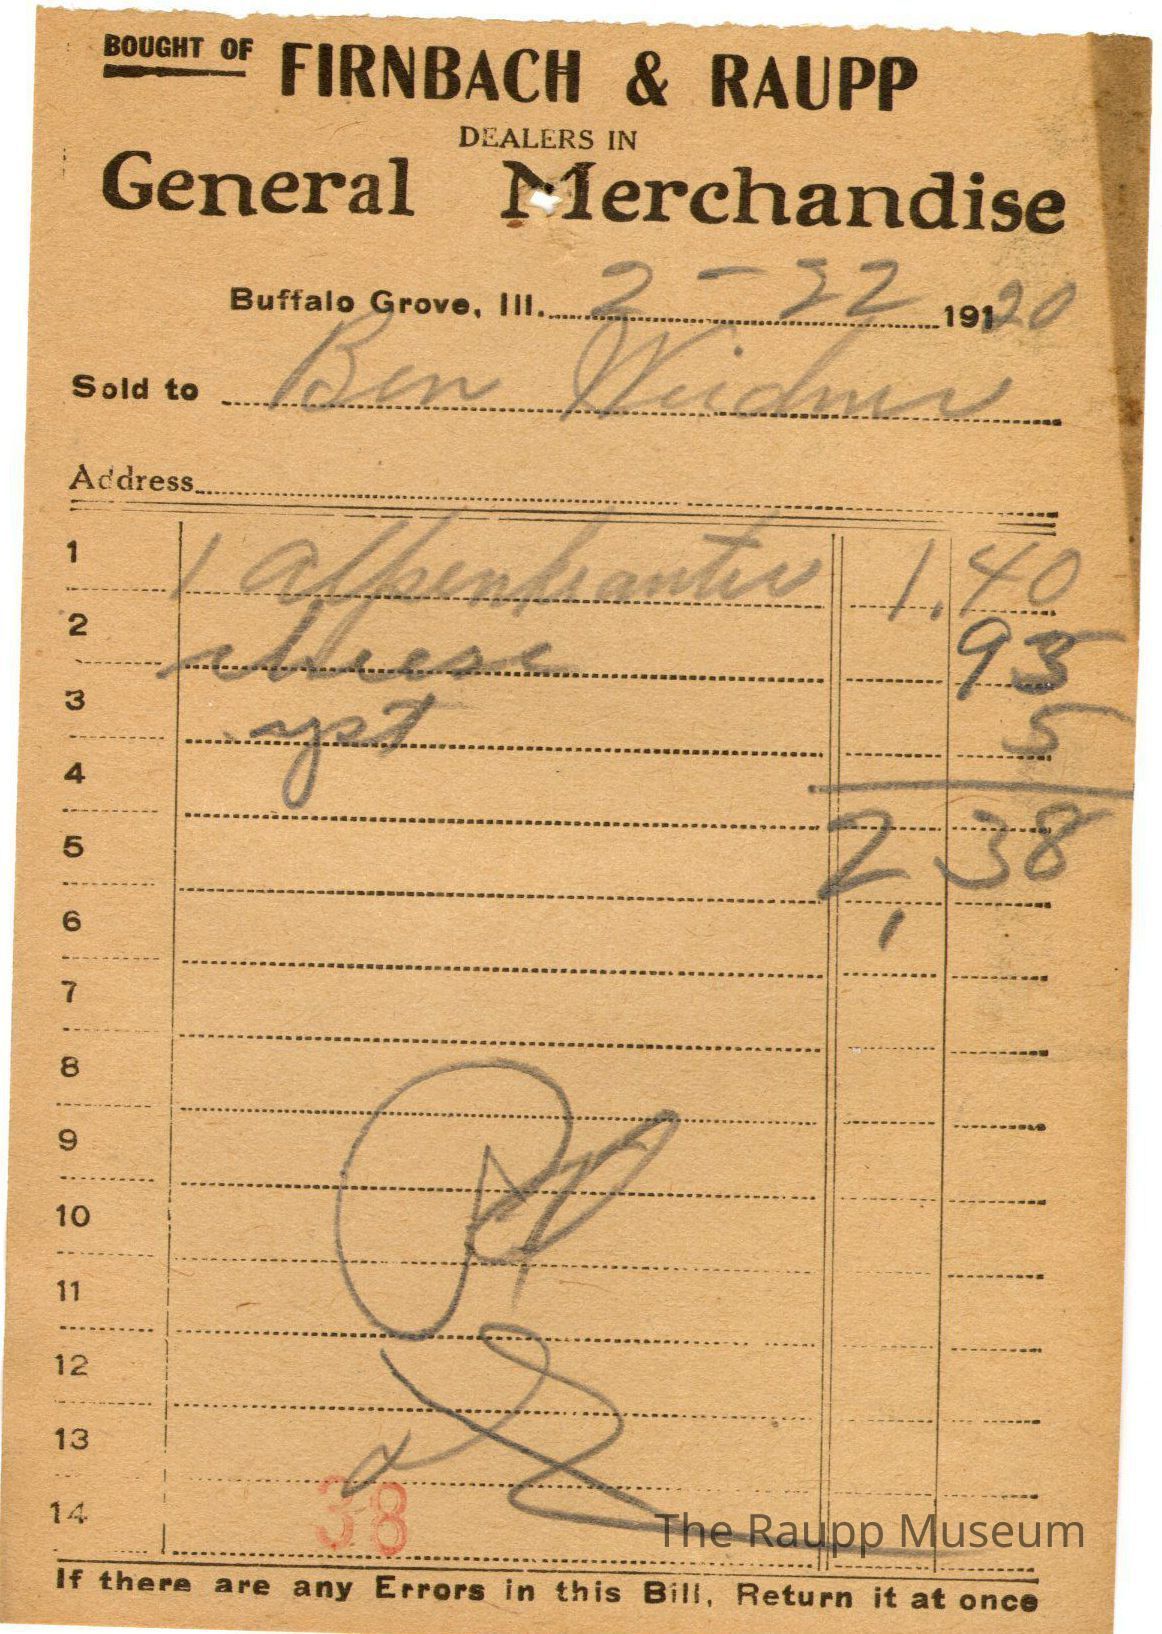 BOUGHT OF FIRNBACH & RAUPP
DEALERS IN
General Merchandise
Buffalo Grove, Ill. 2 - 22 19120
Sold to Ben Weidner
Address
1 1 Alpenkrauter 1.40
2 cheese 93
3 yst 5
4
5 2,38
6
7
8
9
10
11
12
13
14
38
The Raupp Museum
If there are any Errors in this Bill, Return it at once